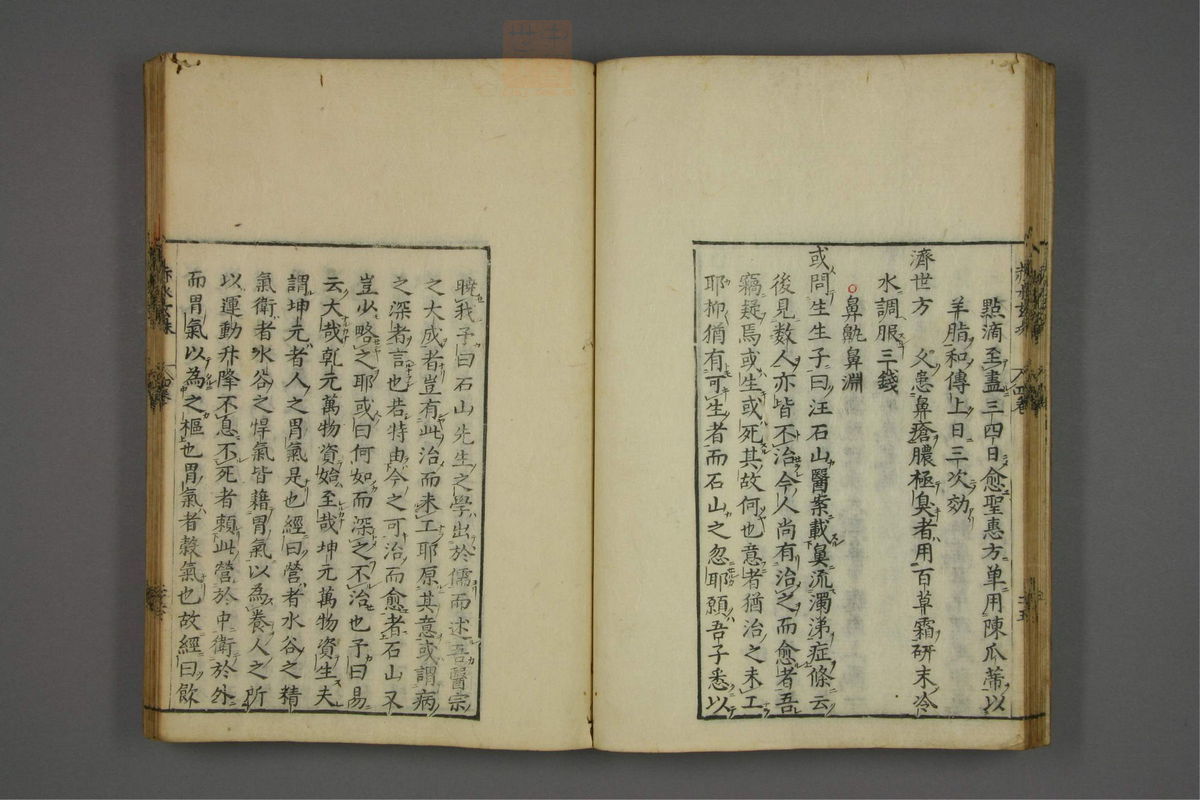 點滴至盡三四日愈聖惠方单用陳瓜蒂以
羊脂和傅上日三次効
濟世方 父患鼻瘡膿極臭者用百草霜研末冷
水調服三錢
鼻鼽鼻淵
或問生生子曰汪石山醫案載鼻流濁涕症條云
後見数人亦皆不治今人尚有治之而愈者吾
竊疑焉或生或死其故何也意者猶治之未工
耶抑猶有可生者而石山之忽耶願吾子悉以
曉我予曰石山先生之學出於儒而述吾醫宗
之大成者豈有此治而未工耶原其意或謂病
之深者言也若特由今之可治而愈者石山又
豈少略之耶或曰何如而深之不治也予曰易
云大哉乾元萬物資始至哉坤元萬物資生夫
謂坤元者人之胃氣是也經曰營者水谷之精
氣衛者水谷之悍氣皆藉胃氣以為養人之所
以運動升降不息不死者頼此營於中衛於外
而胃氣以為之樞也胃氣者穀氣也故經曰飲